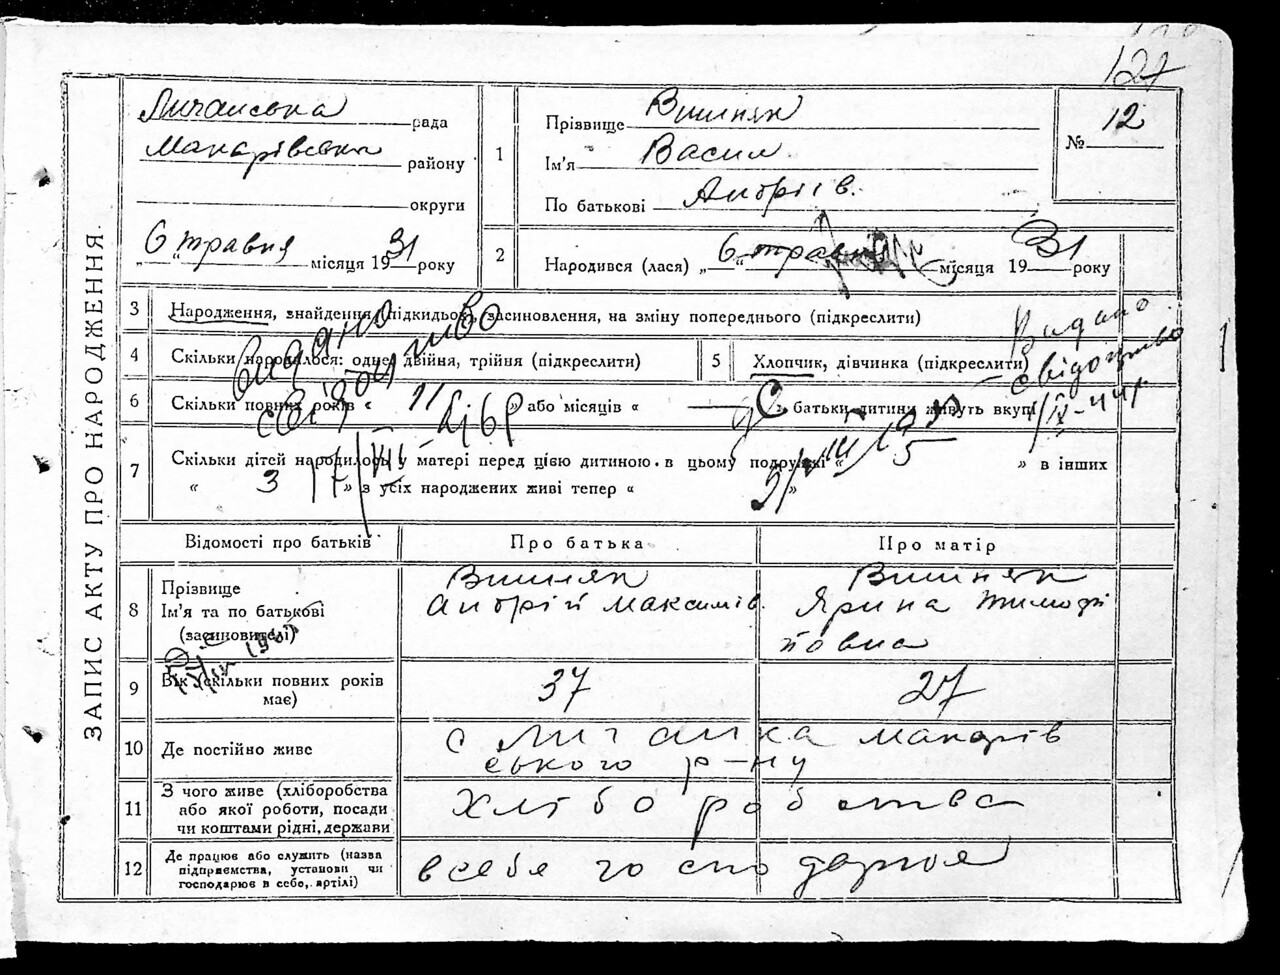 127
ЗАПИС АКТУ ПРО НАРОДЖЕННЯ.
Личанська рада
Макарівська району
округи
„6" травня місяця 1931 року
1
Прізвище Вишняк
Ім'я Васил
По батькові Андріїв.
№ 12
2
Народився (лася) „6" травня місяця 1931 року
3 Народження, знайдення (підкидьок), засиновлення, на зміну попереднього (підкреслити)
4 Скільки народилося: одне, двійня, трійня (підкреслити)
5 Хлопчик, дівчинка (підкреслити)
Видано
свідоцтво
Видано
свідоцтво
6 Скільки повних років « » або місяців « — » батьки дитини живуть вкупі
7 Скільки дітей народилось у матері перед цією дитиною. в цьому подружжі « » в інших
« 3 » з усіх народжених живі тепер « »
Відомості про батьків
Про батька
Про матір
8 Прізвище
Ім'я та по батькові
(засиновителі)
Вишняк
Андрій Максимів.
Вишняк
Ярина Тимофі
ївна
9 Вік (скільки повних років
має)
37
27
10 Де постійно живе
с Личанка макарів
ського р-ну
11 З чого живе (хліборобства
або якої роботи, посади
чи коштами рідні, держави
Хліборобства
12 Де працює або служить (назва
підприємства, установи чи
господарює в себе, артілі)
в себе господарює